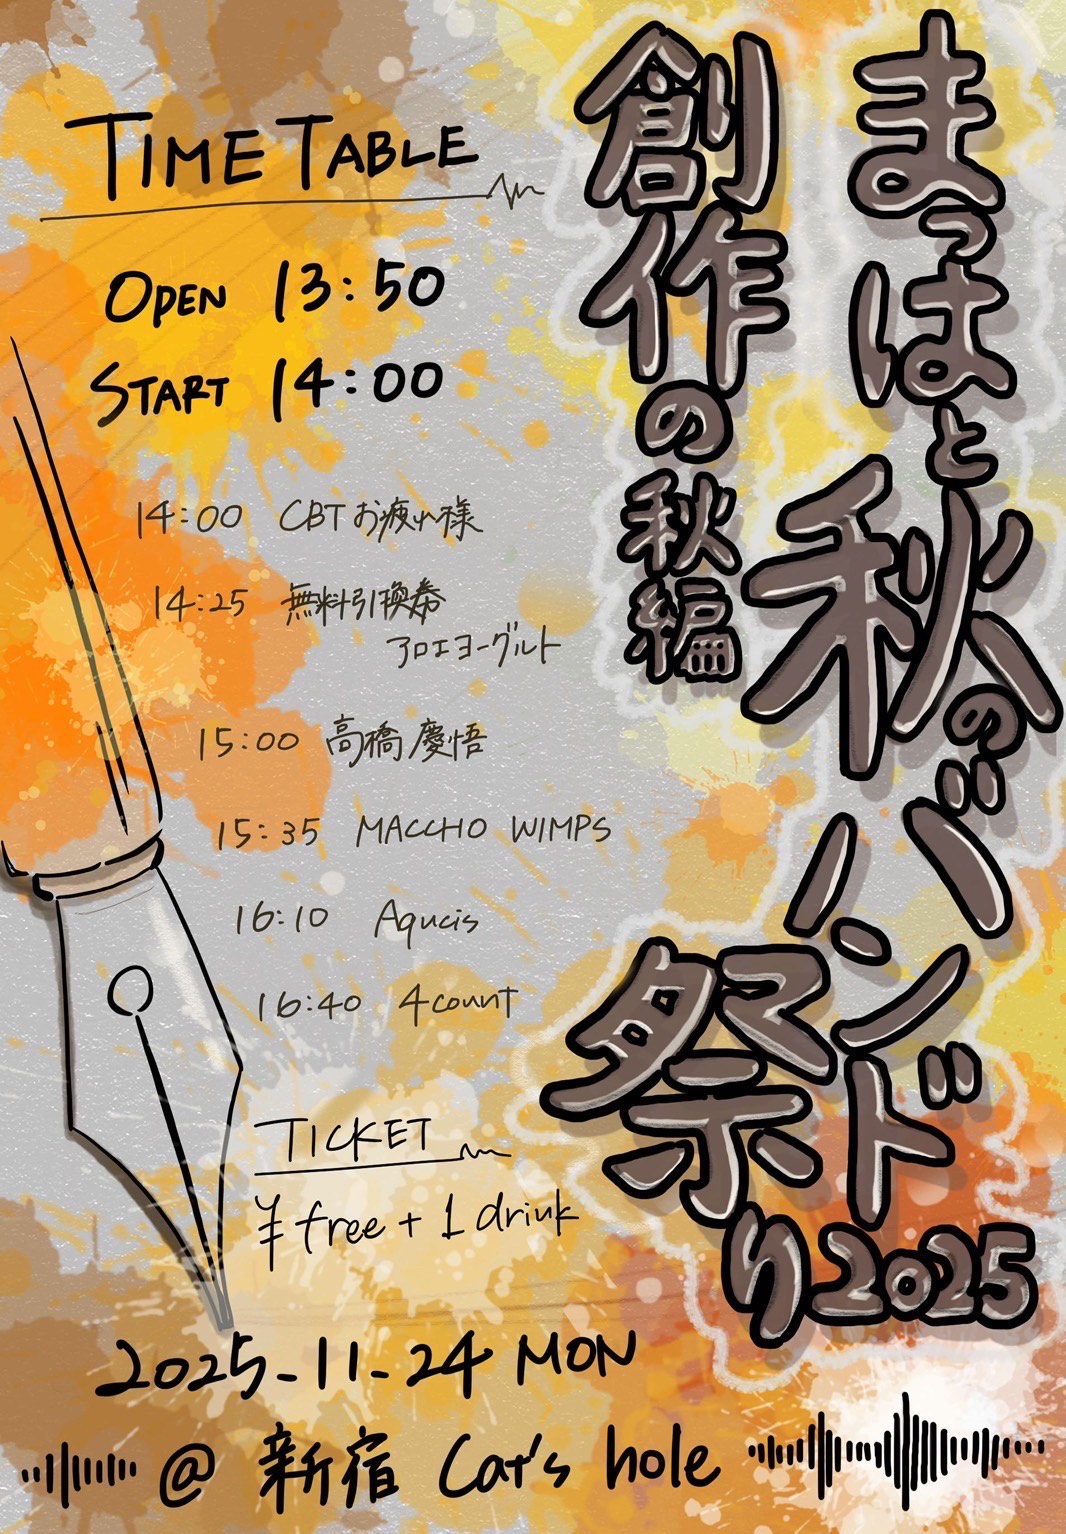 まっはと秋のバンド祭り2025
創作の秋編
TIME TABLE
OPEN 13:50
START 14:00
14:00 CBTお疲れ様
14:25 無料引換券
アロエヨーグルト
15:00 高橋慶悟
15:35 MACCHO WIMPS
16:10 Aqucis
16:40 4count
TICKET
¥ free + 1 drink
2025-11-24 MON
@ 新宿 Cat's hole